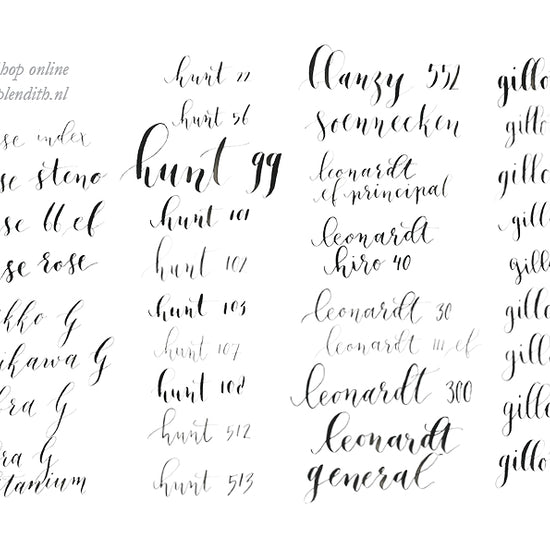 hop online
plendith.nl
se index
se steno
se ll ef
se rose
kko G
ikawa G
bra G
ra G
tanium
hunt 22
hunt 56
hunt 99
hunt 101
hunt 102
hunt 103
hunt 107
hunt 108
hunt 512
hunt 513
blanzy 552
soennecken
leonardt
ef principal
leonardt
hiro 40
leonardt 30
leonardt 111 ef
leonardt 300
leonardt
general
gillo
gillo
gillo
gillo
gillo
gillo
gillo
gillo
gillo